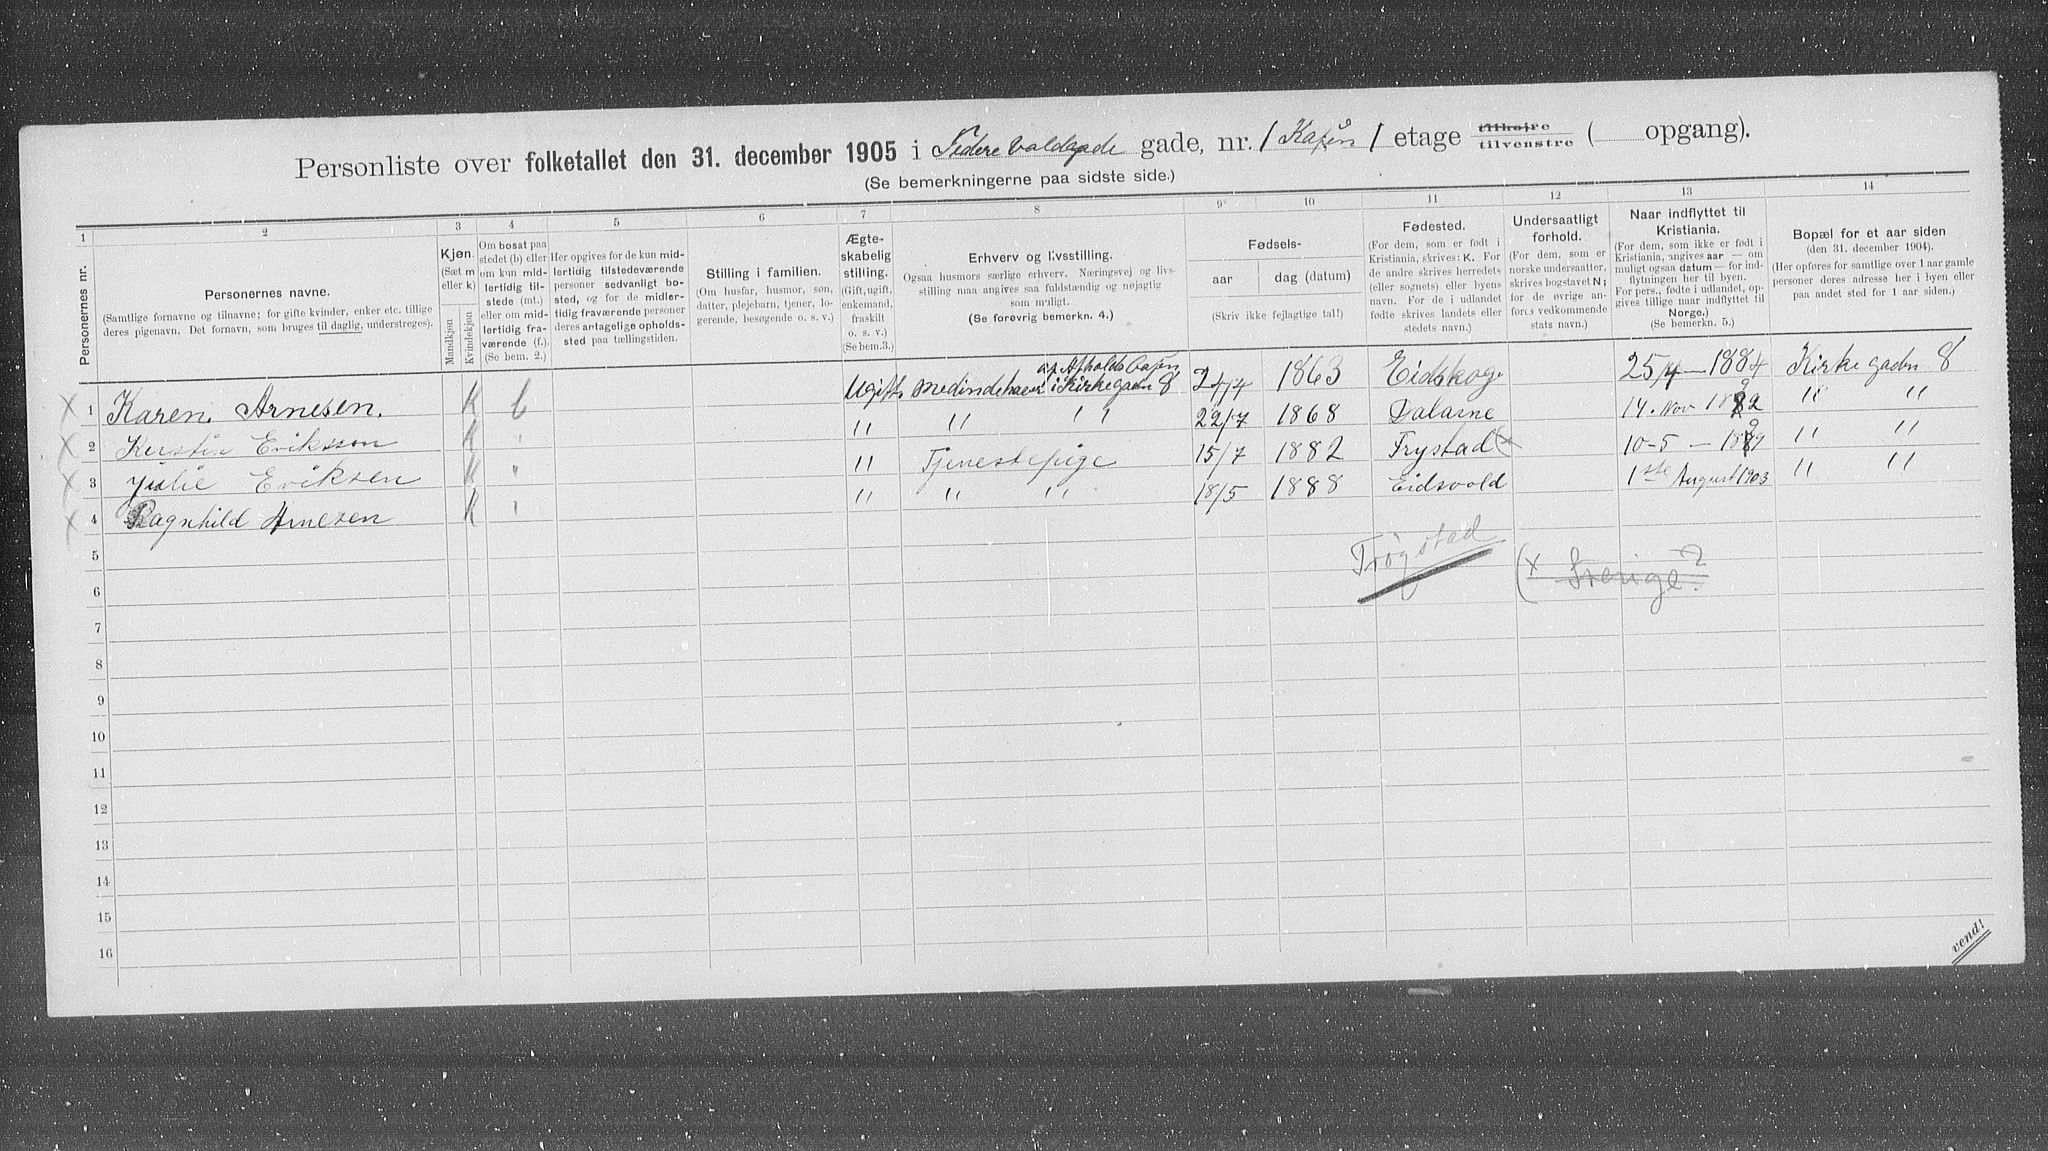 Personliste over folketallet den 31. december 1905 i Nedere Voldgade gade, nr. 1 Kafén 1 etage tilhøjre tilvenstre ( opgang).
(Se bemerkningerne paa sidste side.)
1 2 3 4 5 6 7 8 9 10 11 12 13 14
Personernes nr.
Personernes navne.
(Samtlige fornavne og tilnavne; for gifte kvinder, enker etc. tillige
deres pigenavn. Det fornavn, som bruges til daglig, understreges).
Kjøn.
(Sæt m
eller k)
Mandkjøn
Kvindekjøn
Om bosat paa
stedet (b) eller
om kun mid-
lertidig til-
stede (mt.)
eller om mid-
lertidig fra-
værende (f.).
(Se bem. 2.)
Her opgives for de kun mid-
lertidig tilstedeværende
personer sedvanligt bo-
sted, og for de midler-
tidig fraværende personer
deres antagelige opholds-
sted paa tællingstiden.
Stilling i familien.
(Om husfar, husmor, søn,
datter, plejebarn, tjener, lo-
gerende, besøgende o. s. v.)
Ægte-
skabelig
stilling.
(Gift, ugift,
enkemand,
fraskilt
o. s. v.)
(Se bem.3.)
Erhverv og livsstilling.
Ogsaa husmors særlige erhverv. Næringsvej og livs-
stilling maa angives saa fuldstændig og nøjagtig
som muligt.
(Se forøvrig bemerkn. 4.)
Fødsels-
aar
dag (datum)
(Skriv ikke fejlagtige tal!)
Fødested.
(For dem, som er født i
Kristiania, skrives: K. For
de andre skrives herredets
(eller sognets) eller byens
navn. For de i udlandet
fødte skrives landets eller
stedets navn.)
Undersaatligt
forhold.
(For dem, som er
norske undersaatter,
skrives bogstavet N;
for de øvrige an-
føres vedkommende
stats navn.)
Naar indflyttet til
Kristiania.
(For dem, som ikke er født i
Kristiania, angives aar — om
muligt ogsaa datum — for ind-
flytningen her til byen.
For pers., fødte i udlandet, op-
gives tillige naar indflyttet til
Norge.)
(Se bemerkn. 5.)
Bopæl for et aar siden
(den 31. december 1904).
(Her opføres for samtlige over 1 aar gamle
personer deres adresse her i byen eller
paa andet sted for 1 aar siden.)
X 1 Karen Arnesen. K b Ugift. Medindehaver af Afholds Cafeen i Kirkegaden 8 24/4 1863 Eidskog. 25/4 – 1884 Kirkegaden 8
X 2 Kerstin Eriksson K " " " " 22/7 1868 Dalarne 14. Nov 1892 " "
X 3 Julie Eriksen K " " Tjenestepige 15/7 1882 Frystad (x 10-5 – 1899 " "
X 4 Ragnhild Arnesen K " " " " 18/5 1888 Eidsvold 1ste August 1903 " "
5
Trøgstad
(x Sverige?
6
7
8
9
10
11
12
13
14
15
16
vend!